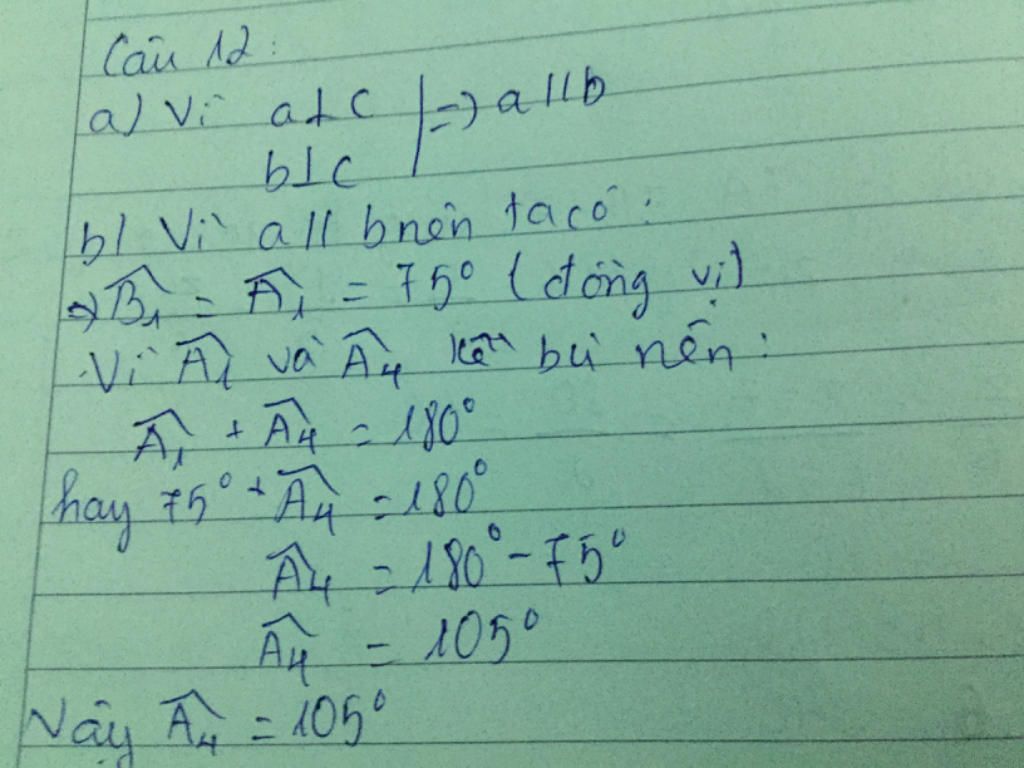 Câu 12:
a) Vì a⊥c | => a // b
b⊥c
b) Vì a // b nên ta có:
=> B̂₁ = Â₁ = 75° (đồng vị)
Vì Â₁ và Â₄ kề bù nên:
Â₁ + Â₄ = 180°
hay 75° + Â₄ = 180°
Â₄ = 180° - 75°
Â₄ = 105°
Vậy Â₄ = 105°